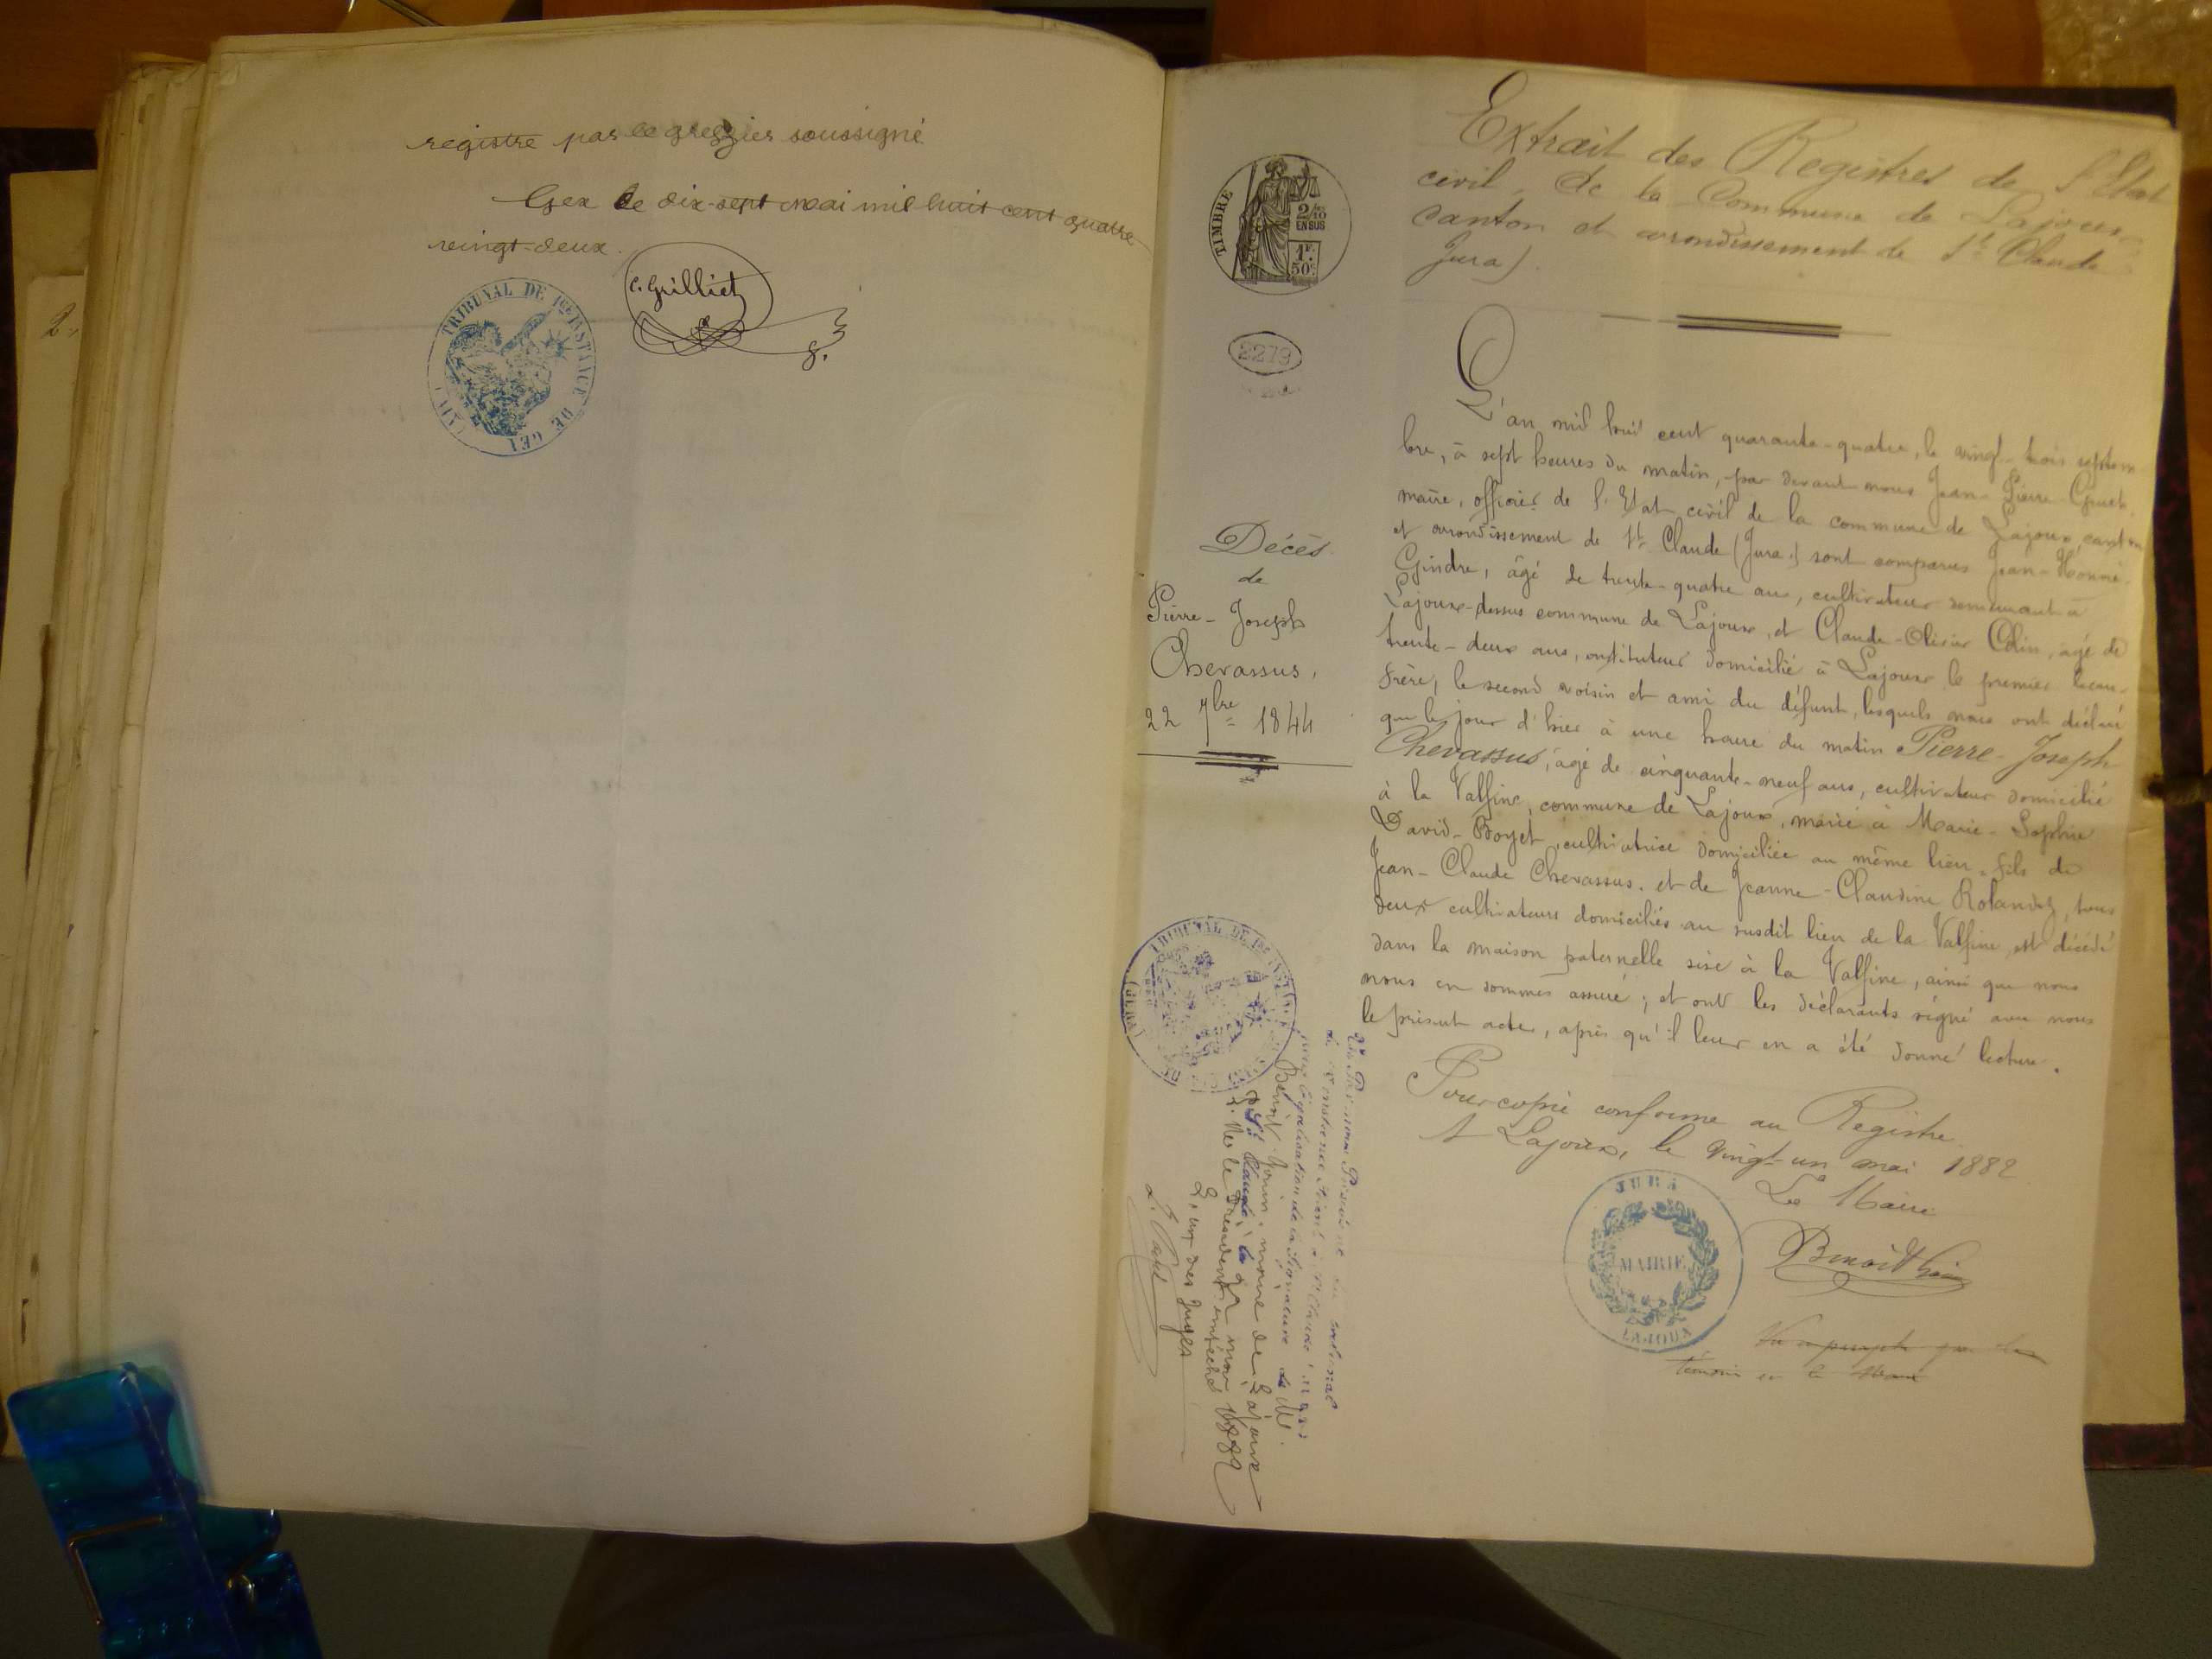 registre par le greffier soussigné
Gex le dix-sept mai mil huit cent quatre
vingt-deux.
C. Grilliet
TRIBUNAL DE 1ère INSTANCE DE GEX
(AIN)
TIMBRE
2/10
EN SUS
1F.
50c.
2273
Décès
de
Pierre-Joseph
Chevassus,
22 7bre 1844
Extrait des Registres de l'Etat
civil, de la Commune de Lajoux
canton et arrondissement de St Claude
Jura).
L'an mil huit cent quarante-quatre, le vingt-trois septem-
bre, à sept heures du matin, par devant nous Jean-Pierre
maire, officier de l'Etat civil de la commune de Lajoux, canton
et arrondissement de St Claude (Jura) sont comparus Jean-
Gindre, âgé de trente-quatre ans, cultivateur demeurant à
Lajoux-dessus commune de Lajoux, et Claude-Olivier Colin, âgé de
trente-deux ans, instituteur domicilié à Lajoux le premier beau-
frère, le second voisin et ami du défunt, lesquels nous ont déclaré
que le jour d'hier à une heure du matin Pierre-Joseph
Chevassus, âgé de cinquante-neuf ans, cultivateur domicilié
à la Valfine, commune de Lajoux, marié à Marie-Sophie
David-Boyet, cultivatrice domiciliée au même lieu, fils de
Jean-Claude Chevassus, et de Jeanne-Claudine Rolandez, tous
deux cultivateurs domiciliés au susdit lieu de la Valfine, est décédé
dans la maison paternelle sise à la Valfine, ainsi que nous
nous en sommes assuré; et ont les déclarants signé avec nous
le présent acte, après qu'il leur en a été donné lecture.
Pour copie conforme au Registre
A Lajoux, le vingt-un mai 1882
Le Maire
JURA
MAIRIE
LAJOUX
TRIBUNAL DE 1ère
(JURA)
Vu Par nous Président du tribunal
de 1ère instance séant à St Claude
pour légalisation de la signature de Mr.
Benoit Gonin, maire de Lajoux
St Claude, le 22 mai 1882
P. Mr le Président empêché
L'un des Juges